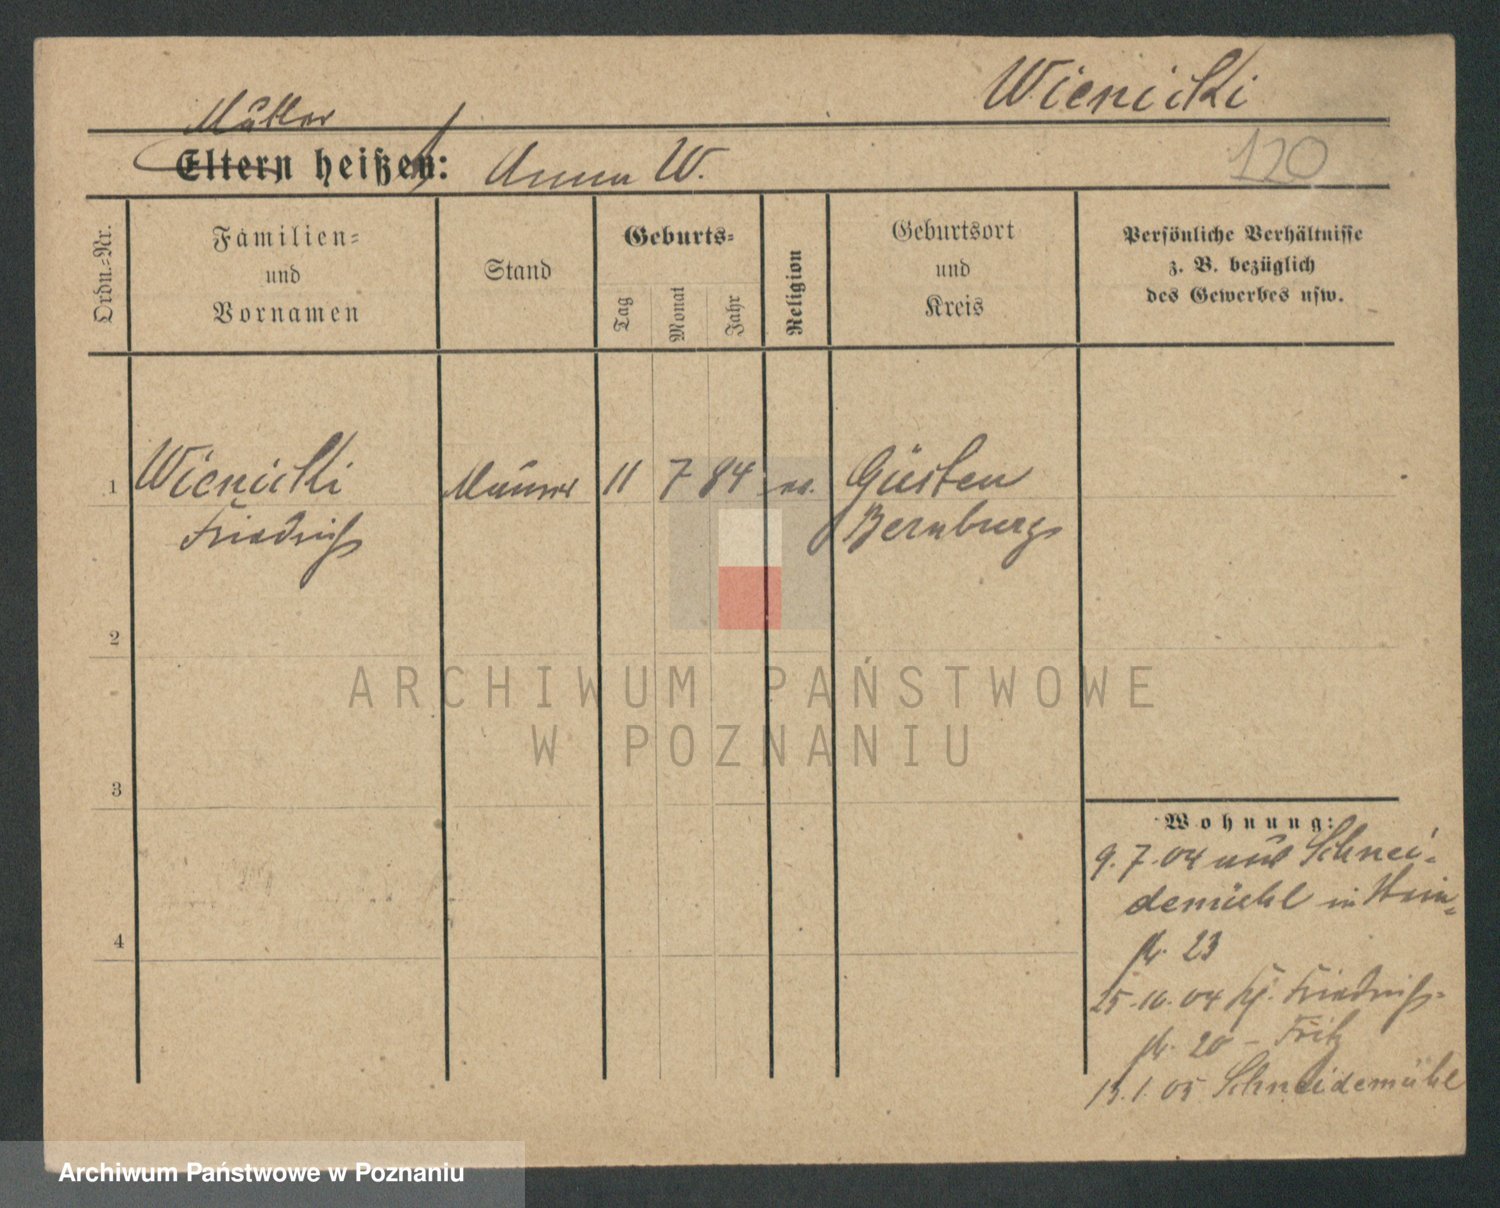 Wienicki
Mutter
Eltern heißen: Anna W.
120
Ordn.=Nr.
Familien=
und
Vornamen
Stand
Geburts=
Tag
Monat
Jahr
Religion
Geburtsort
und
Kreis
Persönliche Verhältnisse
z. B. bezüglich
des Gewerbes usw.
1 Wienicki Maurer 11 7 84 ev. Güsten
Friedrich Bernburg
2
3
4
Wohnung:
9.7.04 aus Schnei-
demühl in
23
25.10.04 Friedrich-
20 - Fritz
13.1.05 Schneidemühl
ARCHIWUM PAŃSTWOWE
W POZNANIU
Archiwum Państwowe w Poznaniu